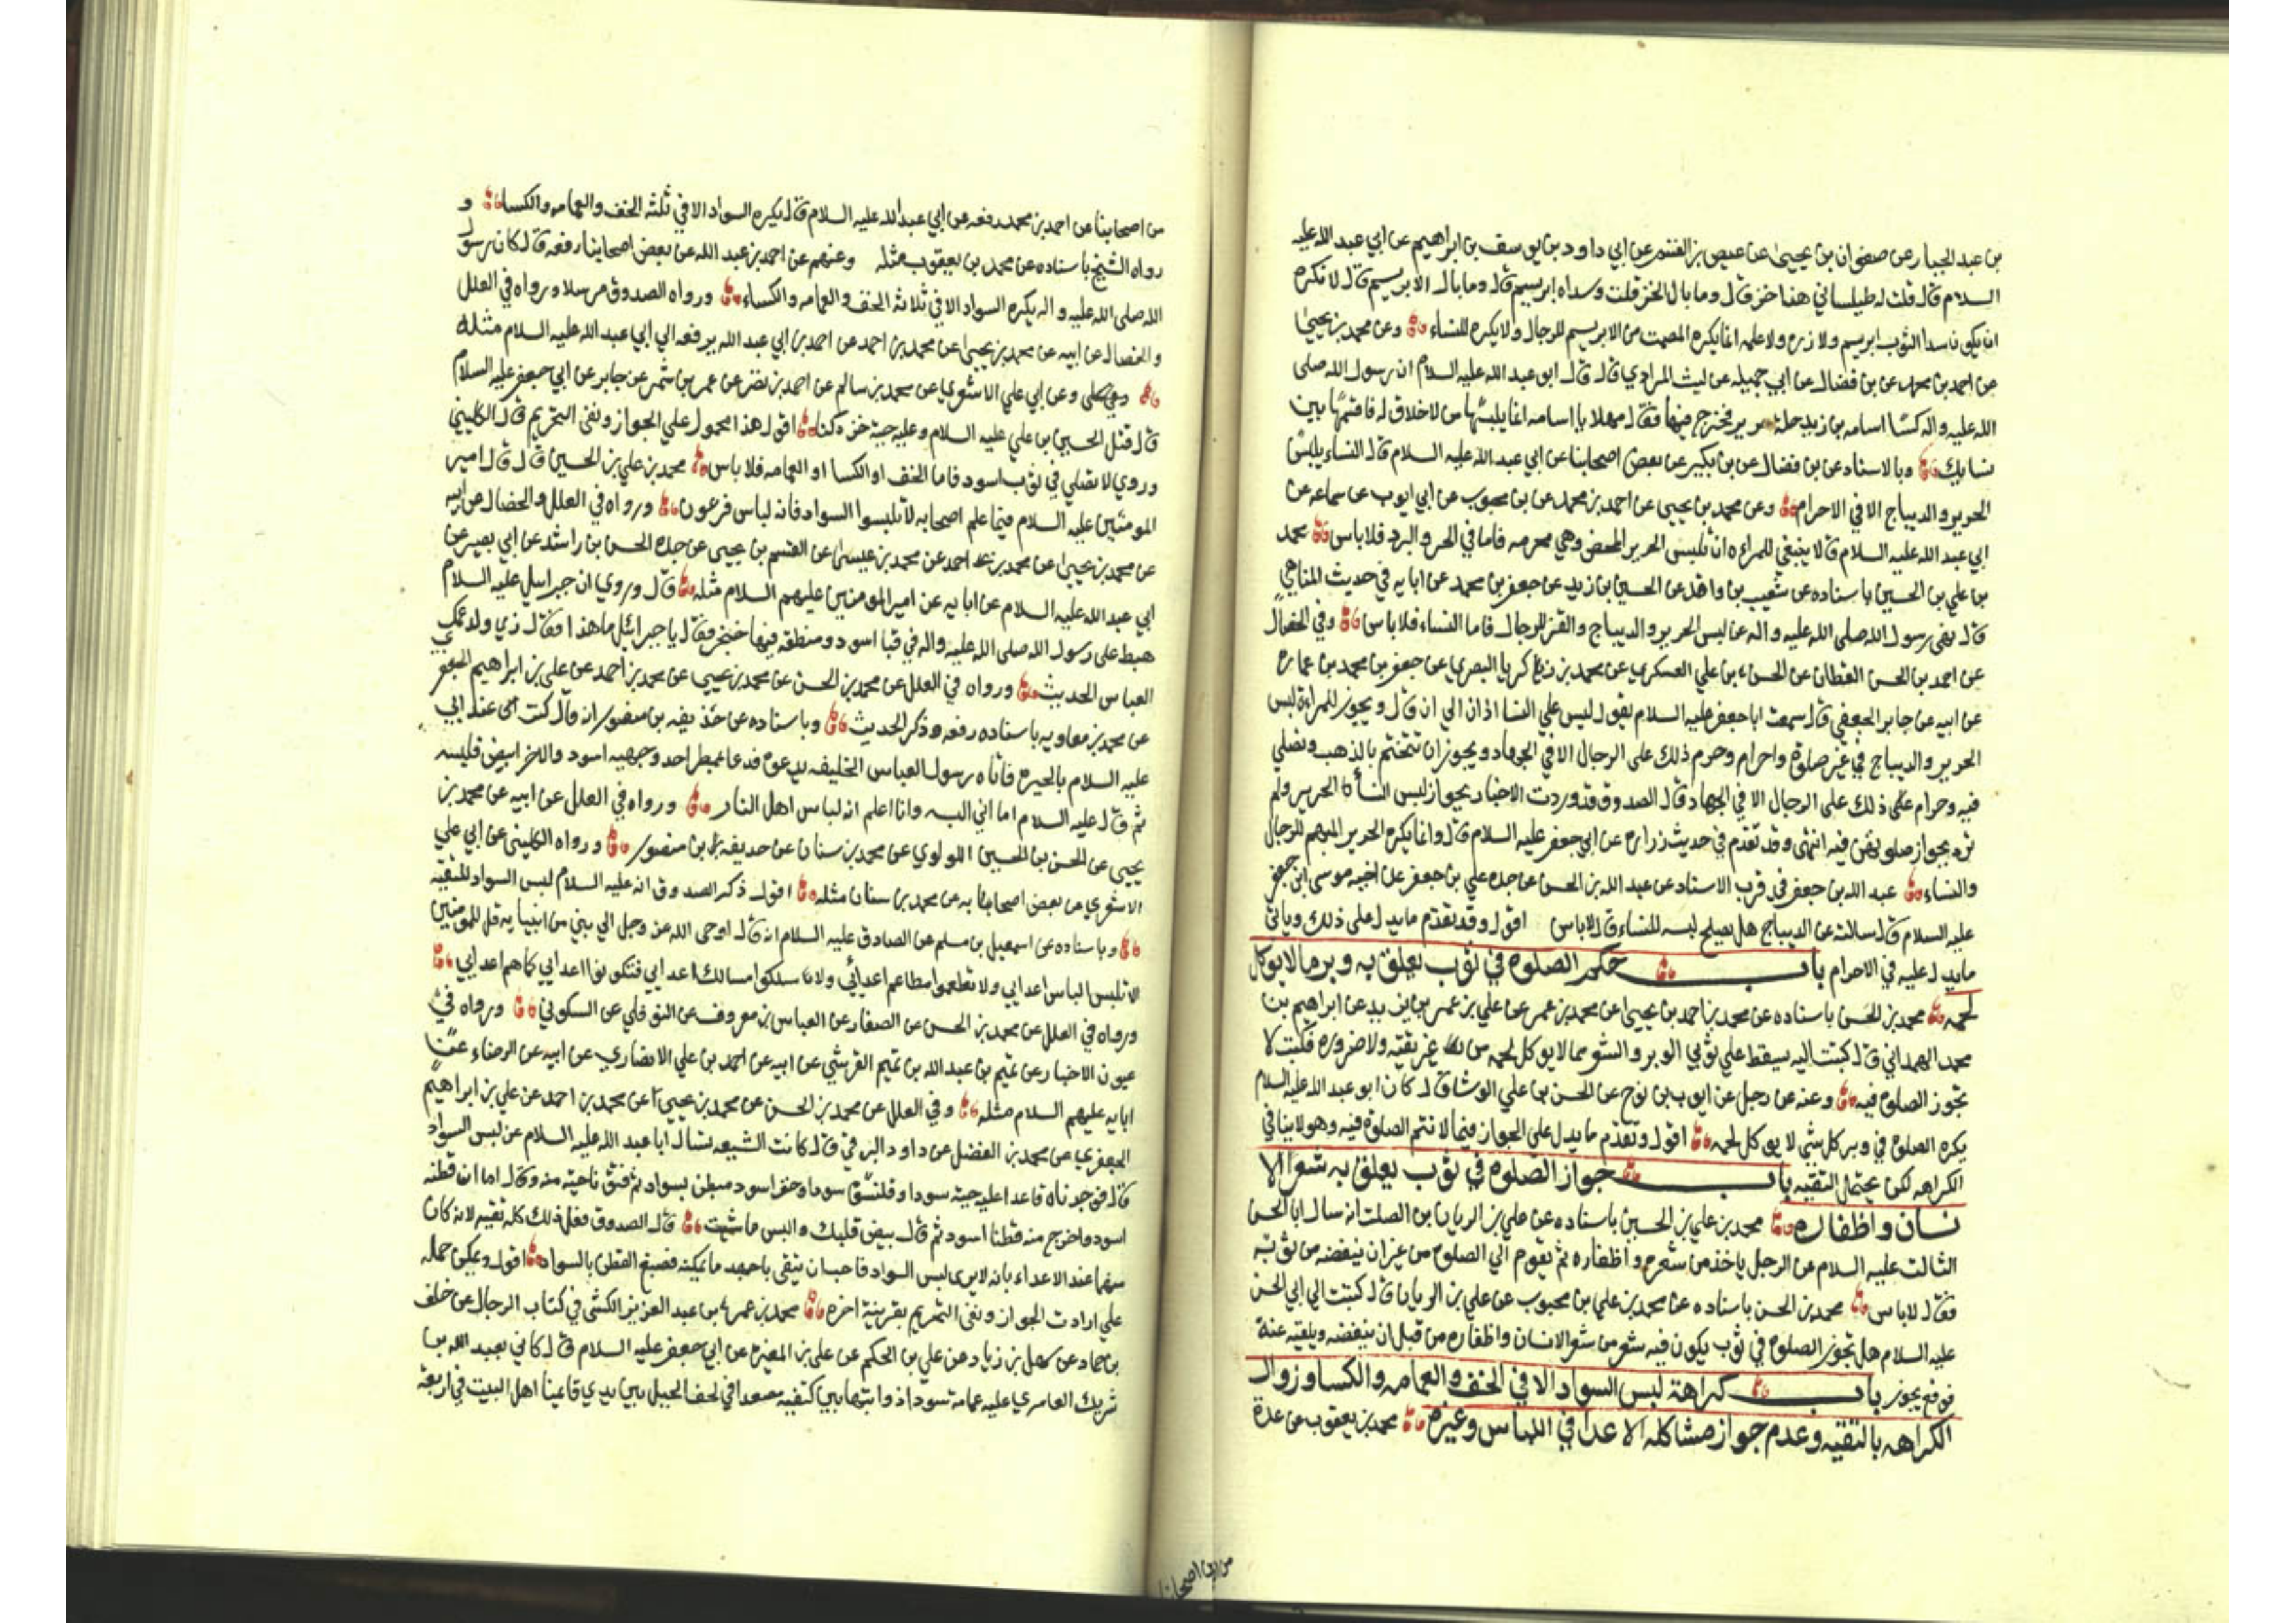 من عبد الجبار عن صفوان بن يحيى عن عيص بن القسم عن ابي داود بن يوسف بن ابراهيم عن ابي عبد الله عليه
السلام قال قلت له طيلساني هذا خز قال وما بال الخز قلت وسداه ابريسم قال وما بال الابريسم قال لا تكره
ان يكون سدا الثوب ابريسم ولا زره ولا علمه انما يكره المصمت من الابريسم للرجال ولا يكره للنساء وعن محمد بن يحيى
عن احمد بن محمد عن بن فضال عن ابي جميله عن ليث المرادي قال قال ابو عبد الله عليه السلام ان رسول الله صلى
الله عليه واله كسا اسامه بن زيد حلة حرير فخرج فيها فقال مهلا يا اسامه انما يلبسها من لا خلاق له فاقسمها بين
نسايك وبالاسناد عن بن فضال عن بن بكير عن بعض اصحابنا عن ابي عبد الله عليه السلام قال النساء يلبسن
الحرير والديباج الا في الاحرام وعن محمد بن يحيى عن احمد بن محمد عن بن محبوب عن ابي ايوب عن سماعه عن
ابي عبد الله عليه السلام قال لا ينبغي للمراءه ان تلبس الحرير المحض وهي محرمه فاما في الحر والبرد فلا باس محمد
بن علي بن الحسين باسناده عن شعيب بن واقد عن الحسين بن زيد عن جعفر بن محمد عن ابايه في حديث المناهي
قال نهى رسول الله صلى الله عليه واله عن لبس الحرير والديباج والقز للرجال فاما النساء فلا باس وفي الخصال
عن احمد بن الحسن القطان عن الحسن بن علي العسكري عن محمد بن زكريا البصري عن جعفر بن محمد بن عماره
عن ابيه عن جابر الجعفي قال سمعت ابا جعفر عليه السلام يقول ليس علي النسا اذان الي ان قال ويجوز للمراءة لبس
الحرير والديباج في غير صلوة واحرام وحرم ذلك على الرجال الا في الجهاد ويجوز ان تتختم بالذهب وتصلي
فيه وحرام على ذلك على الرجال الا في الجهاد قال الصدوق قد وردت الاخبار بجواز لبس النساء الحرير ولم
ترد بجواز صلوتهن فيه انتهى وقد تقدم في حديث زراره عن ابي جعفر عليه السلام قال وانما يكره الحرير المبهم للرجال
والنساء عبد الله بن جعفر في قرب الاسناد عن عبد الله بن الحسن عن جده علي بن جعفر عن اخيه موسى بن جعفر
عليه السلام قال سالته عن الديباج هل يصلح لبسه للنساء قال لا باس اقول وقد تقدم ما يدل على ذلك وياتي
ما يدل عليه في الاحرام باب حكم الصلوه في ثوب يعلق به وبر ما لا يوكل
لحمه محمد بن الحسن باسناده عن محمد بن احمد بن يحيى عن محمد بن عمر عن علي بن عمر بن يزيد عن ابراهيم بن
محمد الهمداني قال كتبت اليه يسقط علي ثوبي الوبر والشعر مما لا يوكل لحمه من غير تقيه ولا ضروره فكتب لا
تجوز الصلوه فيه وعنه عن رجل عن ايوب بن نوح عن الحسن بن علي الوشا قال كان ابو عبد الله عليه السلام
يكره الصلوة في وبر كل شي لا يوكل لحمه اقول وتقدم ما يدل على الجواز فيما لا تتم الصلوة فيه وهو لا ينافي
الكراهه لكن يحتمل التقيه باب جواز الصلوه في ثوب يعلق به شعر الا
نسان واظفاره محمد بن علي بن الحسين باسناده عن علي بن الريان بن الصلت انه سال ابا الحسن
الثالث عليه السلام عن الرجل ياخذ من شعره واظفاره ثم يقوم الي الصلوه من غير ان ينفضه من ثوبه
فقال لا باس محمد بن الحسن باسناده عن محمد بن علي بن محبوب عن علي بن الريان قال كتبت الى ابي الحسن
عليه السلام هل تجوز الصلوه في ثوب يكون فيه شعر من شعر الانسان واظفاره من قبل ان ينفضه ويلقيه عنه
فوقع يجوز باب كراهة لبس السواد الا في الخف والعمامه والكسا وزوال
الكراهه بالتقيه وعدم جواز مشاكله الاعدا في اللباس وغيره محمد بن يعقوب عن عدة
من اصحابنا
من اصحابنا عن احمد بن محمد رفعه عن ابي عبد الله عليه السلام قال يكره السواد الا في ثلثه الخف والعمامه والكسا و
رواه الشيخ باسناده عن محمد بن يعقوب مثله وعنهم عن احمد بن عبد الله عن بعض اصحابنا رفعه قال كان رسول
الله صلى الله عليه واله يكره السواد الا في ثلاثه الخف والعمامه والكساء ورواه الصدوق مرسلا ورواه في العلل
والخصال عن ابيه عن محمد بن يحيى عن محمد بن احمد عن احمد بن ابي عبد الله يرفعه الي ابي عبد الله عليه السلام مثله
وعن ابي علي الاشعري عن محمد بن سالم عن احمد بن نضر عن عمر بن شمر عن جابر عن ابي جعفر عليه السلام
قال قتل الحسين بن علي عليه السلام وعليه جبة خز دكنا اقول هذا محمول علي الجواز ونفى التحريم قال الكليني
وروي لا تصلي في ثوب اسود فاما الخف او الكسا او العمامه فلا باس محمد بن علي بن الحسين قال قال امير
المومنين عليه السلام فيما علم اصحابه لا تلبسوا السواد فانه لباس فرعون ورواه في العلل والخصال عن ابيه
عن محمد بن يحيى عن محمد بن احمد عن محمد بن عيسى عن القسم بن يحيى عن جده الحسن بن راشد عن ابي بصير عن
ابي عبد الله عليه السلام عن ابايه عن امير المومنين عليهم السلام مثله قال وروي ان جبرائيل عليه السلام
هبط على رسول الله صلى الله عليه واله في قبا اسود ومنطقه فيها خنجر فقال يا جبرائيل ما هذا فقال زي ولد عمك
العباس الحديث ورواه في العلل عن محمد بن الحسن عن محمد بن يحيى عن محمد بن احمد عن علي بن ابراهيم الجعفر
عن محمد بن معاويه باسناده رفعه وذكر الحديث وباسناده عن حذيفه بن منصور انه قال كنت عند ابي
عليه السلام بالحيره فاتاه رسول العباس الخليفه يدعوه فدعا بممطر احد وجهيه اسود والاخر ابيض فلبسه
ثم قال عليه السلام اما اني البسه وانا اعلم انه لباس اهل النار ورواه في العلل عن ابيه عن محمد بن
يحيى عن الحسن بن الحسين اللولوي عن محمد بن سنان عن حذيفه بن منصور ورواه الكليني عن ابي علي
الاشعري عن بعض اصحابه عن محمد بن سنان مثله اقول ذكر الصدوق انه عليه السلام لبس السواد للتقيه
وباسناده عن اسمعيل بن مسلم عن الصادق عليه السلام انه قال اوحى الله عز وجل الي نبي من انبيايه قل للمومنين
لا تلبس لباس اعدايي ولا تطعموا مطاعم اعدائي ولا تسلكوا مسالك اعدايي فتكونوا اعدايي كما هم اعدايي
ورواه في العلل عن محمد بن الحسن عن الصفار عن العباس بن معروف عن النوفلي عن السكوني ورواه في
عيون الاخبار عن تميم بن عبد الله بن تميم القرشي عن ابيه عن احمد بن علي الانصاري عن ابيه عن الرضاء عن
ابايه عليهم السلام مثله وفي العلل عن محمد بن الحسن عن محمد بن يحيى عن محمد بن احمد عن علي بن ابراهيم
الجعفري عن محمد بن الفضل عن داود البرقي قال كانت الشيعه تسال ابا عبد الله عليه السلام عن لبس السواد
قال فوجدناه قاعدا عليه جبة سودا وقلنسوه سودا وخف اسود مبطن بسواد ثم فتق ناحيته منه وقال اما ان قطنه
اسود واخرج منه قطنا اسود ثم قال بيض قلبك والبس ما شيت قال الصدوق فعل ذلك كله تقيه لانه كان
متهما عند الاعداء بانه لا يرى لبس السواد فاحب ان يتقى باجهد ما يمكنه فصبغ القطن بالسواد اقول ويمكن حمله
علي ارادت الجواز ونفى التحريم بقرينة اخره محمد بن عمر بن عبد العزيز الكشى في كتاب الرجال عن خلف
بن حماد عن سهل بن زياد عن علي بن الحكم عن علي بن المغيره عن ابي جعفر عليه السلام قال كاني بعبد الله بن
شريك العامري عليه عمامه سودا ذوابتها بين كتفيه مصعدا في لحف الجبل بين يدي قايمنا اهل البيت في اربعة